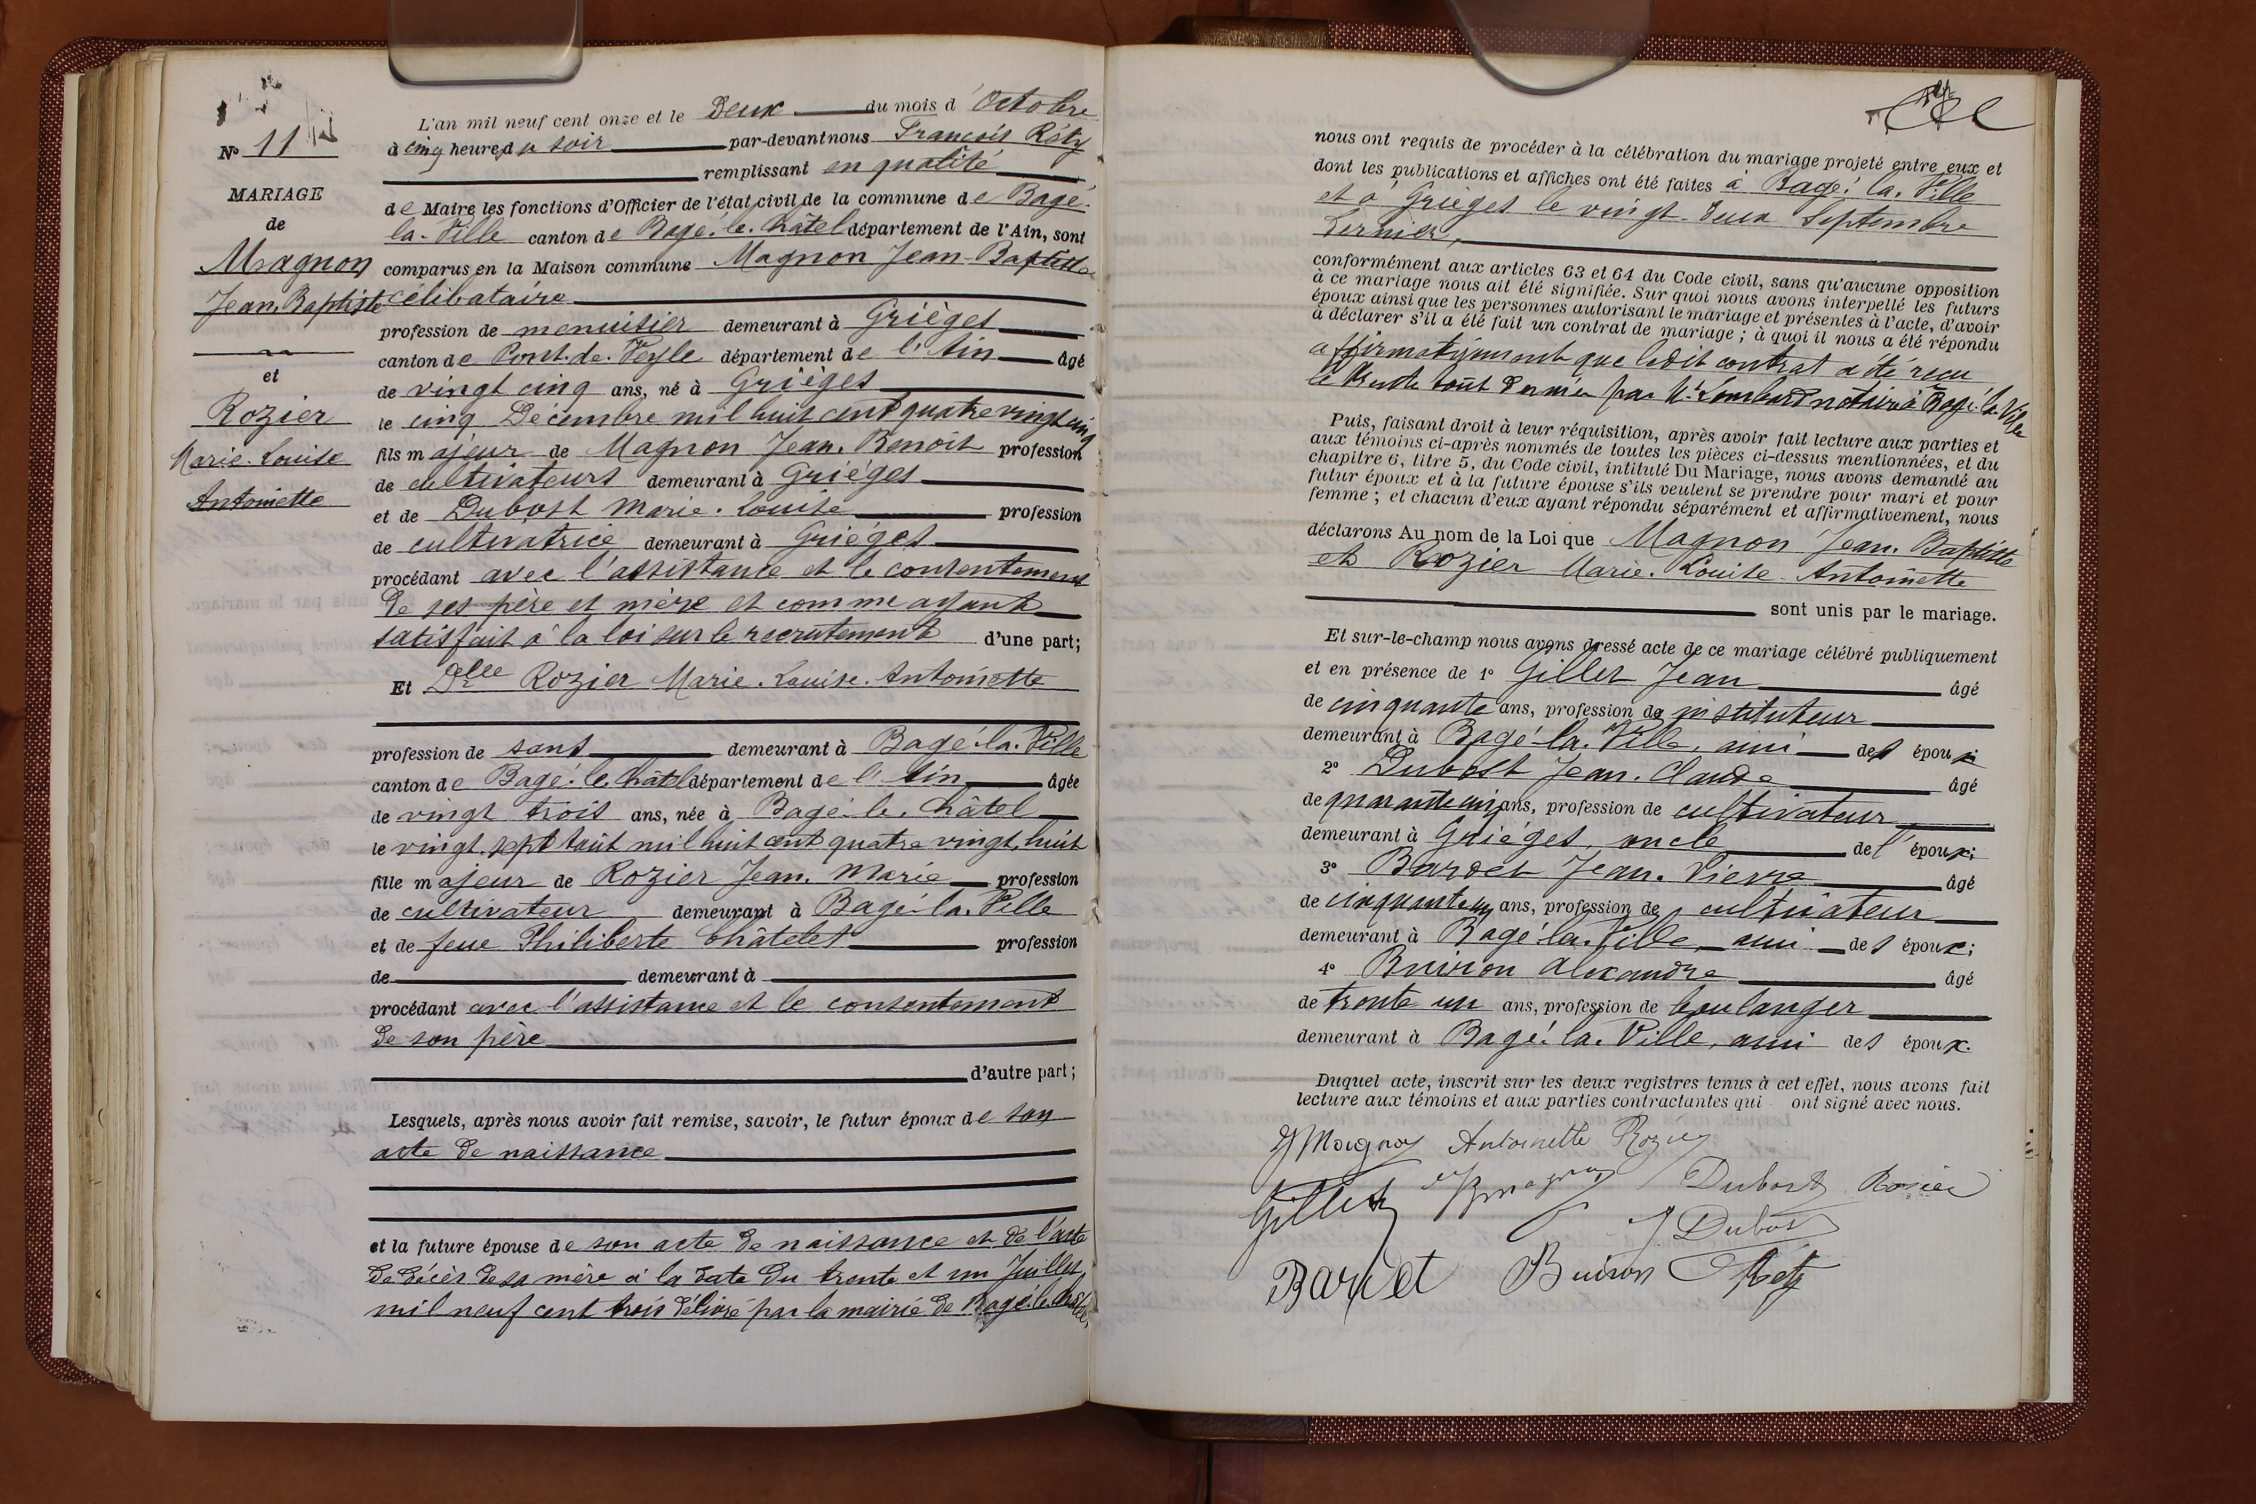 N° 11
MARIAGE
de
Magnon
Jean. Baptiste
et
Rozier
Marie. Louise
Antoinette
L'an mil neuf cent onze et le Deux du mois d'Octobre
à cinq heures du soir par-devant nous François Réty
remplissant en qualité
de Maire les fonctions d'Officier de l'état civil de la commune de Bagé.
la. Ville canton de Bagé. le. Châtel département de l'Ain, sont
comparus en la Maison commune Magnon Jean Baptiste
célibataire
profession de menuisier demeurant à Grièges
canton de Pont. de. Veyle département de l'Ain âgé
de vingt cinq ans, né à Grièges
le cinq Décembre mil huit cent quatre vingt cinq
fils majeur de Magnon Jean. Benoit profession
de cultivateurs demeurant à Grièges
et de Dubost Marie. Louise profession
de cultivatrice demeurant à Grièges
procédant avec l'assistance et le consentement
de ses père et mère et comme ayant
satisfait à la loi sur le recrutement d'une part;
Et Delle Rozier Marie. Louise. Antoinette
profession de sans demeurant à Bagé. la. Ville
canton de Bagé. le. Châtel département de l'Ain âgée
de vingt trois ans, née à Bagé. le. Châtel
le vingt. sept Août mil huit cent quatre vingt. huit
fille majeur de Rozier Jean. Marie profession
de cultivateur demeurant à Bagé. la. Ville
et de feue Philiberte Châtelet profession
de demeurant à
procédant avec l'assistance et le consentement
de son père
d'autre part;
Lesquels, après nous avoir fait remise, savoir, le futur époux de son
acte de naissance
et la future épouse de son acte de naissance et de l'acte
de décès de sa mère à la date du trente et un Juillet
mil neuf cent trois délivré par la mairie de Bagé. le. Châtel,
nous ont requis de procéder à la célébration du mariage projeté entre eux et
dont les publications et affiches ont été faites à Bagé. la. Ville
et à Grièges le vingt. deux Septembre
dernier,
conformément aux articles 63 et 64 du Code civil, sans qu'aucune opposition
à ce mariage nous ait été signifiée. Sur quoi nous avons interpellé les futurs
époux ainsi que les personnes autorisant le mariage et présentes à l'acte, d'avoir
à déclarer s'il a été fait un contrat de mariage; à quoi il nous a été répondu
affirmativement que ledit contrat a été reçu
le trente Août dernier par Me Lombard notaire à Bagé. la. Ville
Puis, faisant droit à leur réquisition, après avoir fait lecture aux parties et
aux témoins ci-après nommés de toutes les pièces ci-dessus mentionnées, et du
chapitre 6, titre 5, du Code civil, intitulé Du Mariage, nous avons demandé au
futur époux et à la future épouse s'ils veulent se prendre pour mari et pour
femme; et chacun d'eux ayant répondu séparément et affirmativement, nous
déclarons Au nom de la Loi que Magnon Jean. Baptiste
et Rozier Marie. Louise. Antoinette
sont unis par le mariage.
Et sur-le-champ nous avons dressé acte de ce mariage célébré publiquement
et en présence de 1° Gillet Jean âgé
de cinquante ans, profession de instituteur
demeurant à Bagé. la. Ville, ami des époux
2° Dubost Jean. Claude âgé
de quarante cinq ans, profession de cultivateur
demeurant à Grièges, oncle de l'époux;
3° Bardet Jean. Pierre âgé
de cinquante ans, profession de cultivateur
demeurant à Bagé. la. Ville, ami des époux;
4° Buiron Alexandre âgé
de trente un ans, profession de boulanger
demeurant à Bagé. la. Ville, ami des époux.
Duquel acte, inscrit sur les deux registres tenus à cet effet, nous avons fait
lecture aux témoins et aux parties contractantes qui ont signé avec nous.
J Magnon Antoinette Rozier
Gillet Magnon Dubost Rosier
J Dubost
Bardet Buiron Réty